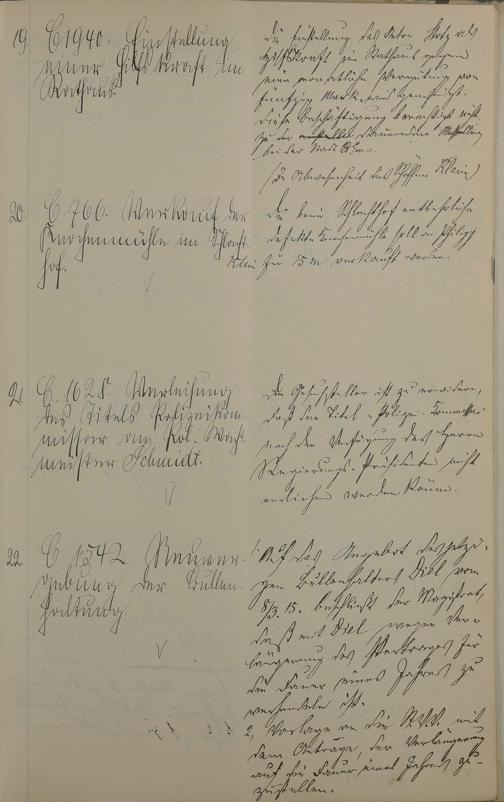 19. C 1940. Einstellung
einer Hilfskraft im
Rathaus.
Die Einstellung des Anton Klotz als
Hilfskraft im Rathaus gegen
eine monatliche Vergütung von
fünfzig Mark wird genehmigt.
Diese Beschäftigung berechtigt nicht
zu der dauernden Anstellung
bei der Stadt
(In Abwesenheit des Schöffen Klein)
20. C. 766. Verkauf der
Knochenmühle im Schlacht-
hof.
Die beim Schlachthof entbehrliche
defekte Knochenmühle soll an Philipp
Klein zu 15 M verkauft werden.
21. C. 1628. Verleihung
des Titels Polizeikom-
missar an Pol. Wacht-
meister Schmidt.
Der Gesuchsteller ist zu erwidern,
daß der Titel "Polizei-Kommissar"
nach der Verfügung des Herrn
Regierungs-Präsidenten nicht
verliehen werden könne.
22. C. 1542. Neuver-
gebung der Bullen-
haltung.
1. Auf das Angebot des jetzi-
gen Bullenhalters Diel vom
8/3.15. beschließt der Magistrat,
daß mit Diel wegen Ver-
längerung des Vertrages für
die Dauer eines Jahres zu
verhandeln ist.
2, Vorlage an die St.V.V. mit
dem Antrage, der Verlängerung
auf die Dauer eines Jahres zu-
zustellen.